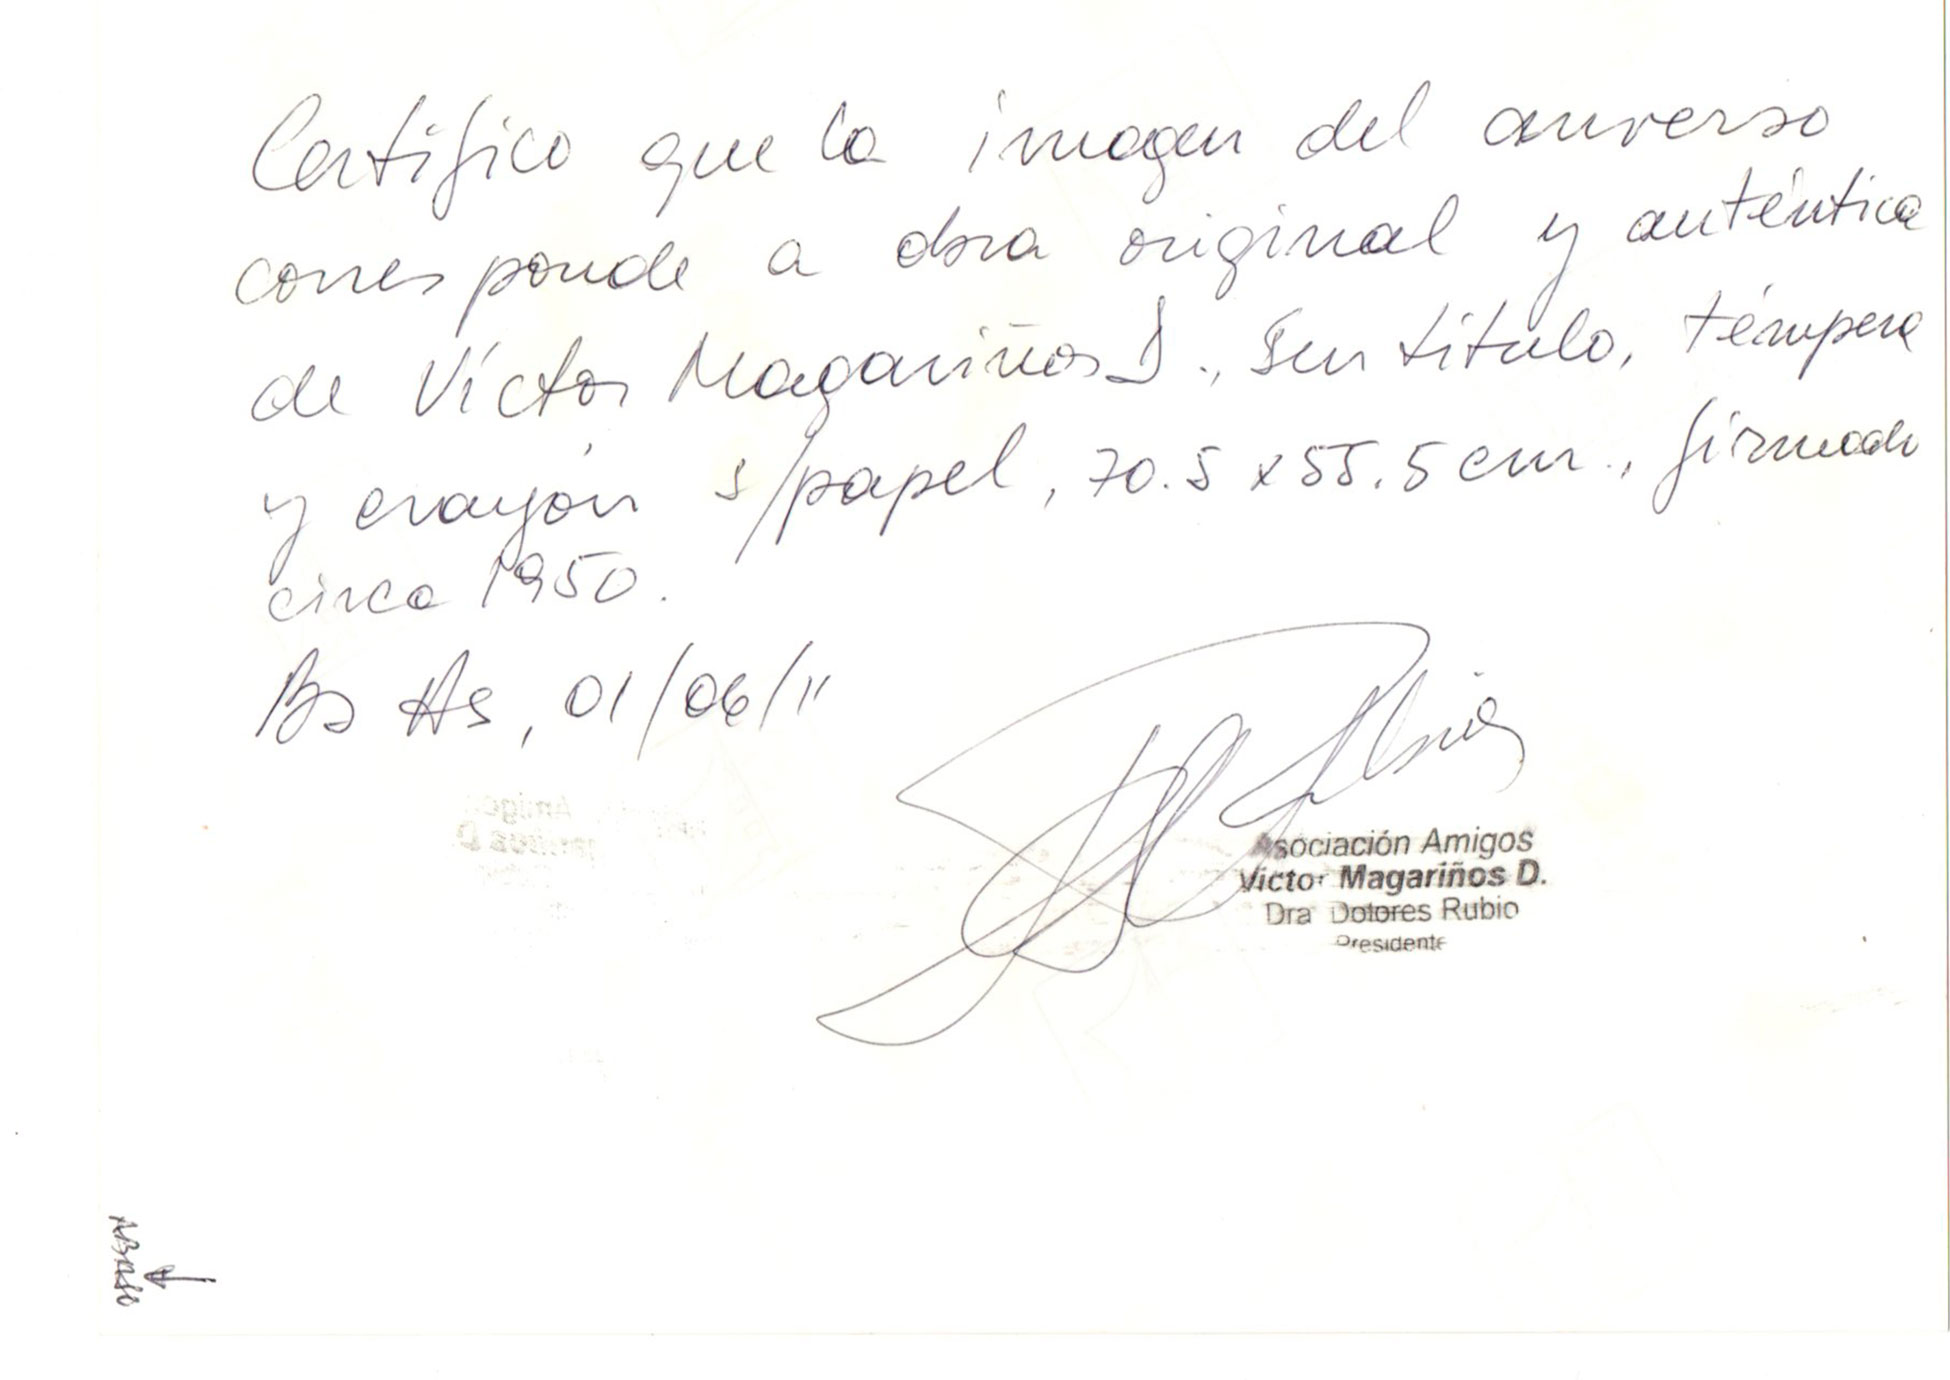 Certifico que la imagen del anverso
corresponde a obra original y auténtica
de Víctor Magariños D., Sin título, témpera
y crayón s/papel, 70.5 x 55.5 cm., firmado
circa 1950.
Bs As, 01/06/11
Asociación Amigos
Victor Magariños D.
Dra Dolores Rubio
Presidente
ABAJO